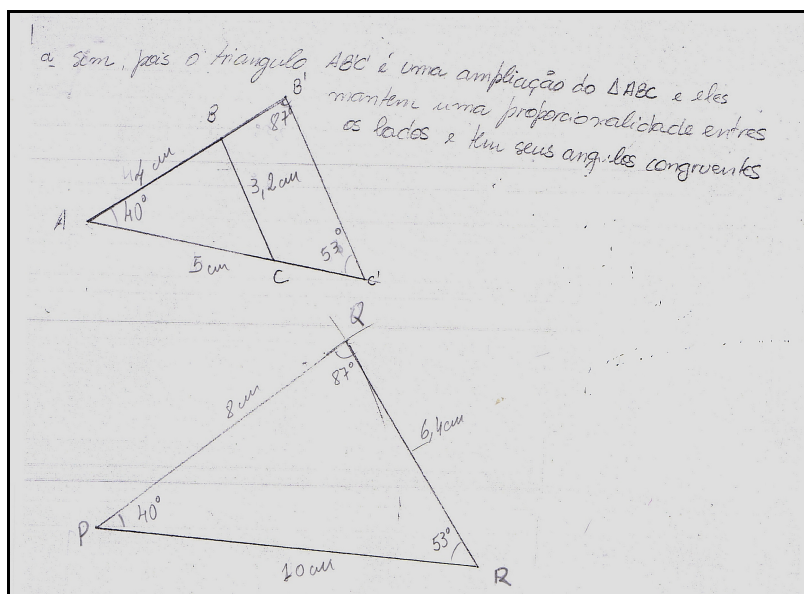 1
a sim, pois o triangulo AB'C' é uma ampliação do ΔABC e eles
mantem uma proporcionalidade entres
os lados e tem seus angulos congruentes
B'
B
87°
4 cm
3,2cm
A
40°
53°
5 cm
C
C'
Q
87°
8 cm
6,4cm
P
40°
53°
10 cm
R